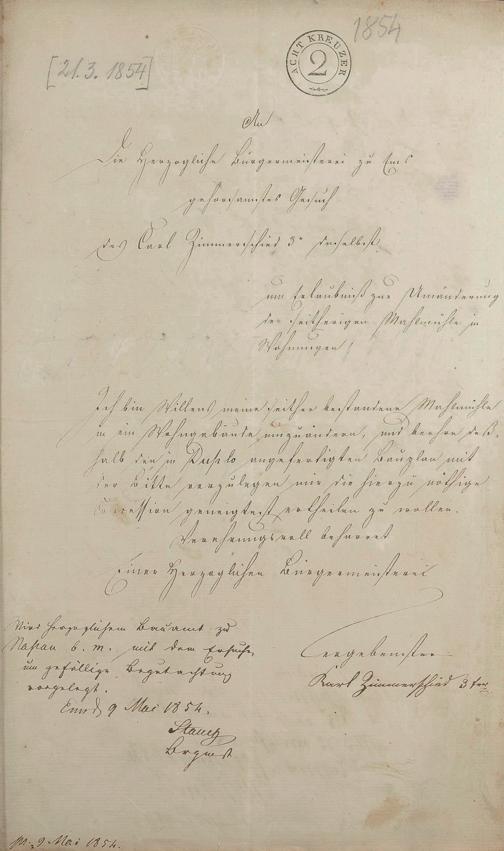 [21.3.1854]
1854
ACHT KREUZER
2
An
Die Herzogliche Bürgermeisterei zu Ems
gehorsamstes Gesuch
des Carl Zimmerschied 3r daselbst,
um Erlaubniß zur Umänderung
der seitherigen Mahlmühle in
Wohnungen,
Ich bin Willens meine seither bestandene Mahlmühle
in ein Wohngebäude umzuändern, und beehre deß-
halb den in Duplo angefertigten Bauplan mit
der Bitte vorzulegen mir die hierzu nöthige
Concession geneigtest ertheilen zu wollen.
Verehrungsvoll beharret
Einer Herzoglichen Bürgermeisterei
ergebenster
Karl Zimmerschied 3ter
Wird Herzoglichem Bauamt zu
Nassau b. m. mit dem Ersuchen
um gefällige Begutachtung
vorgelegt.
Ems d 9 Mai 1854.
Brgmst
pr. 9 Mai 1854.